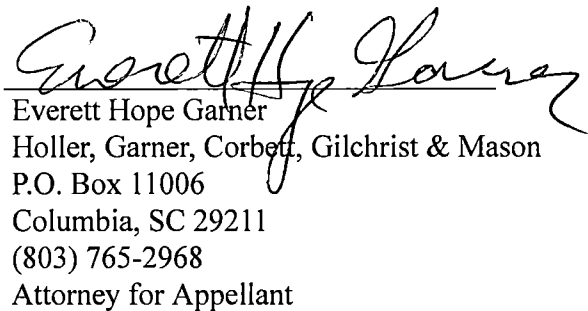 Everett Hope Garner
Everett Hope Garner
Holler, Garner, Corbett, Gilchrist & Mason
P.O. Box 11006
Columbia, SC 29211
(803) 765-2968
Attorney for Appellant